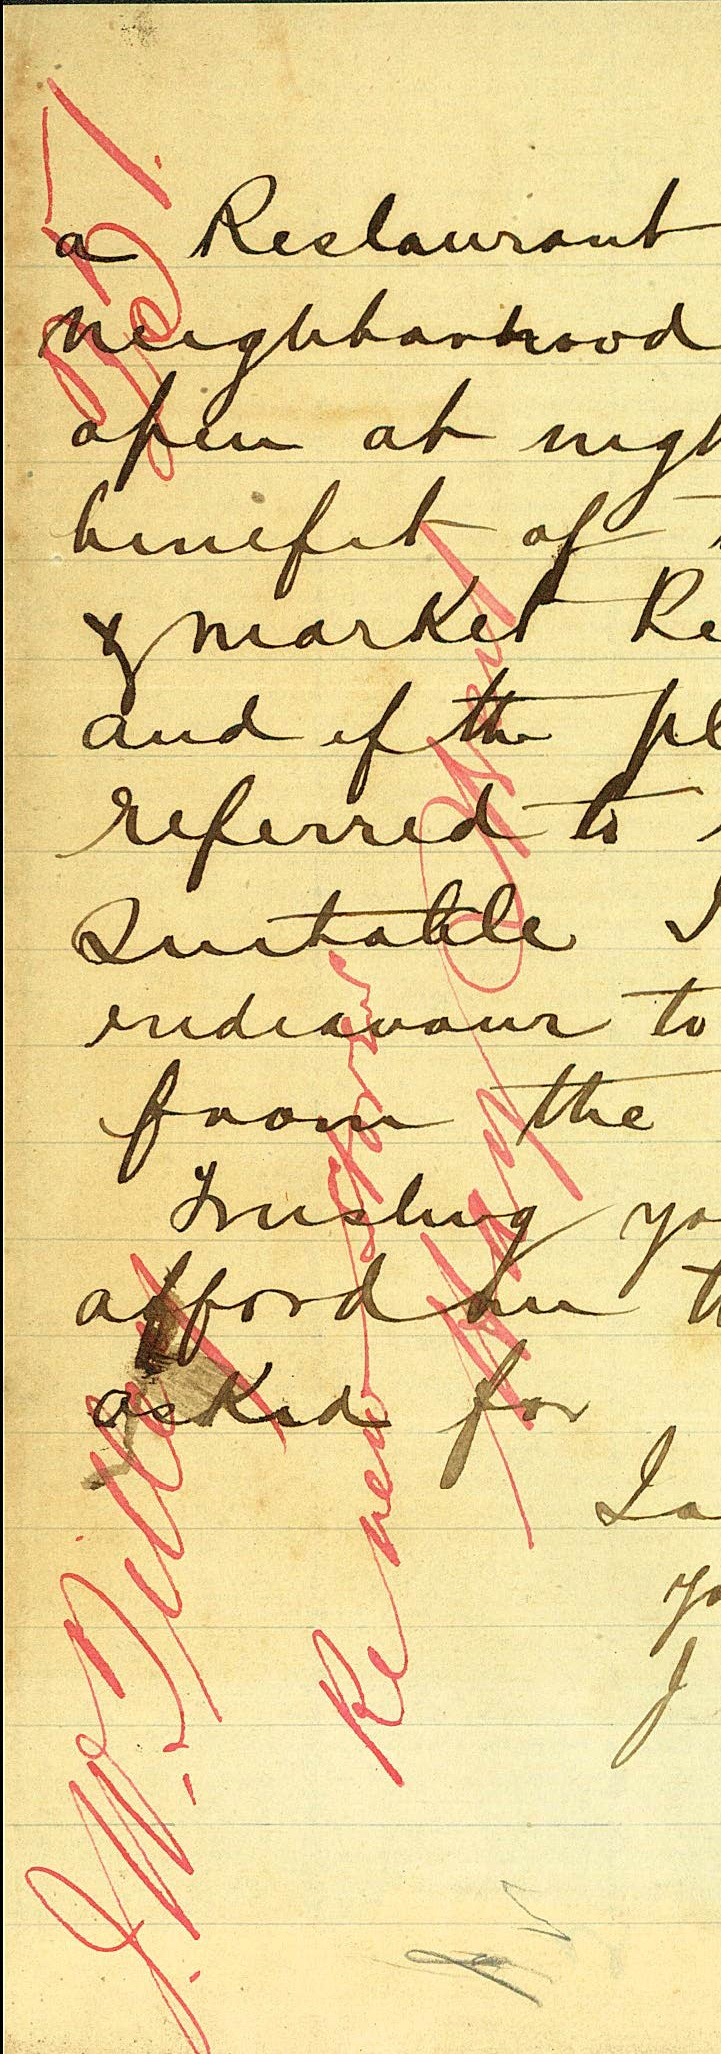 a Restaurant
neighborhood
open at nigh
benefit of
& market Re
and if the pl
referred to
Suitable I
endeavour to
from the
Trusting yo
afford me th
asked for
Ia
yo
J
J. W.
Re new stores
Hay Market